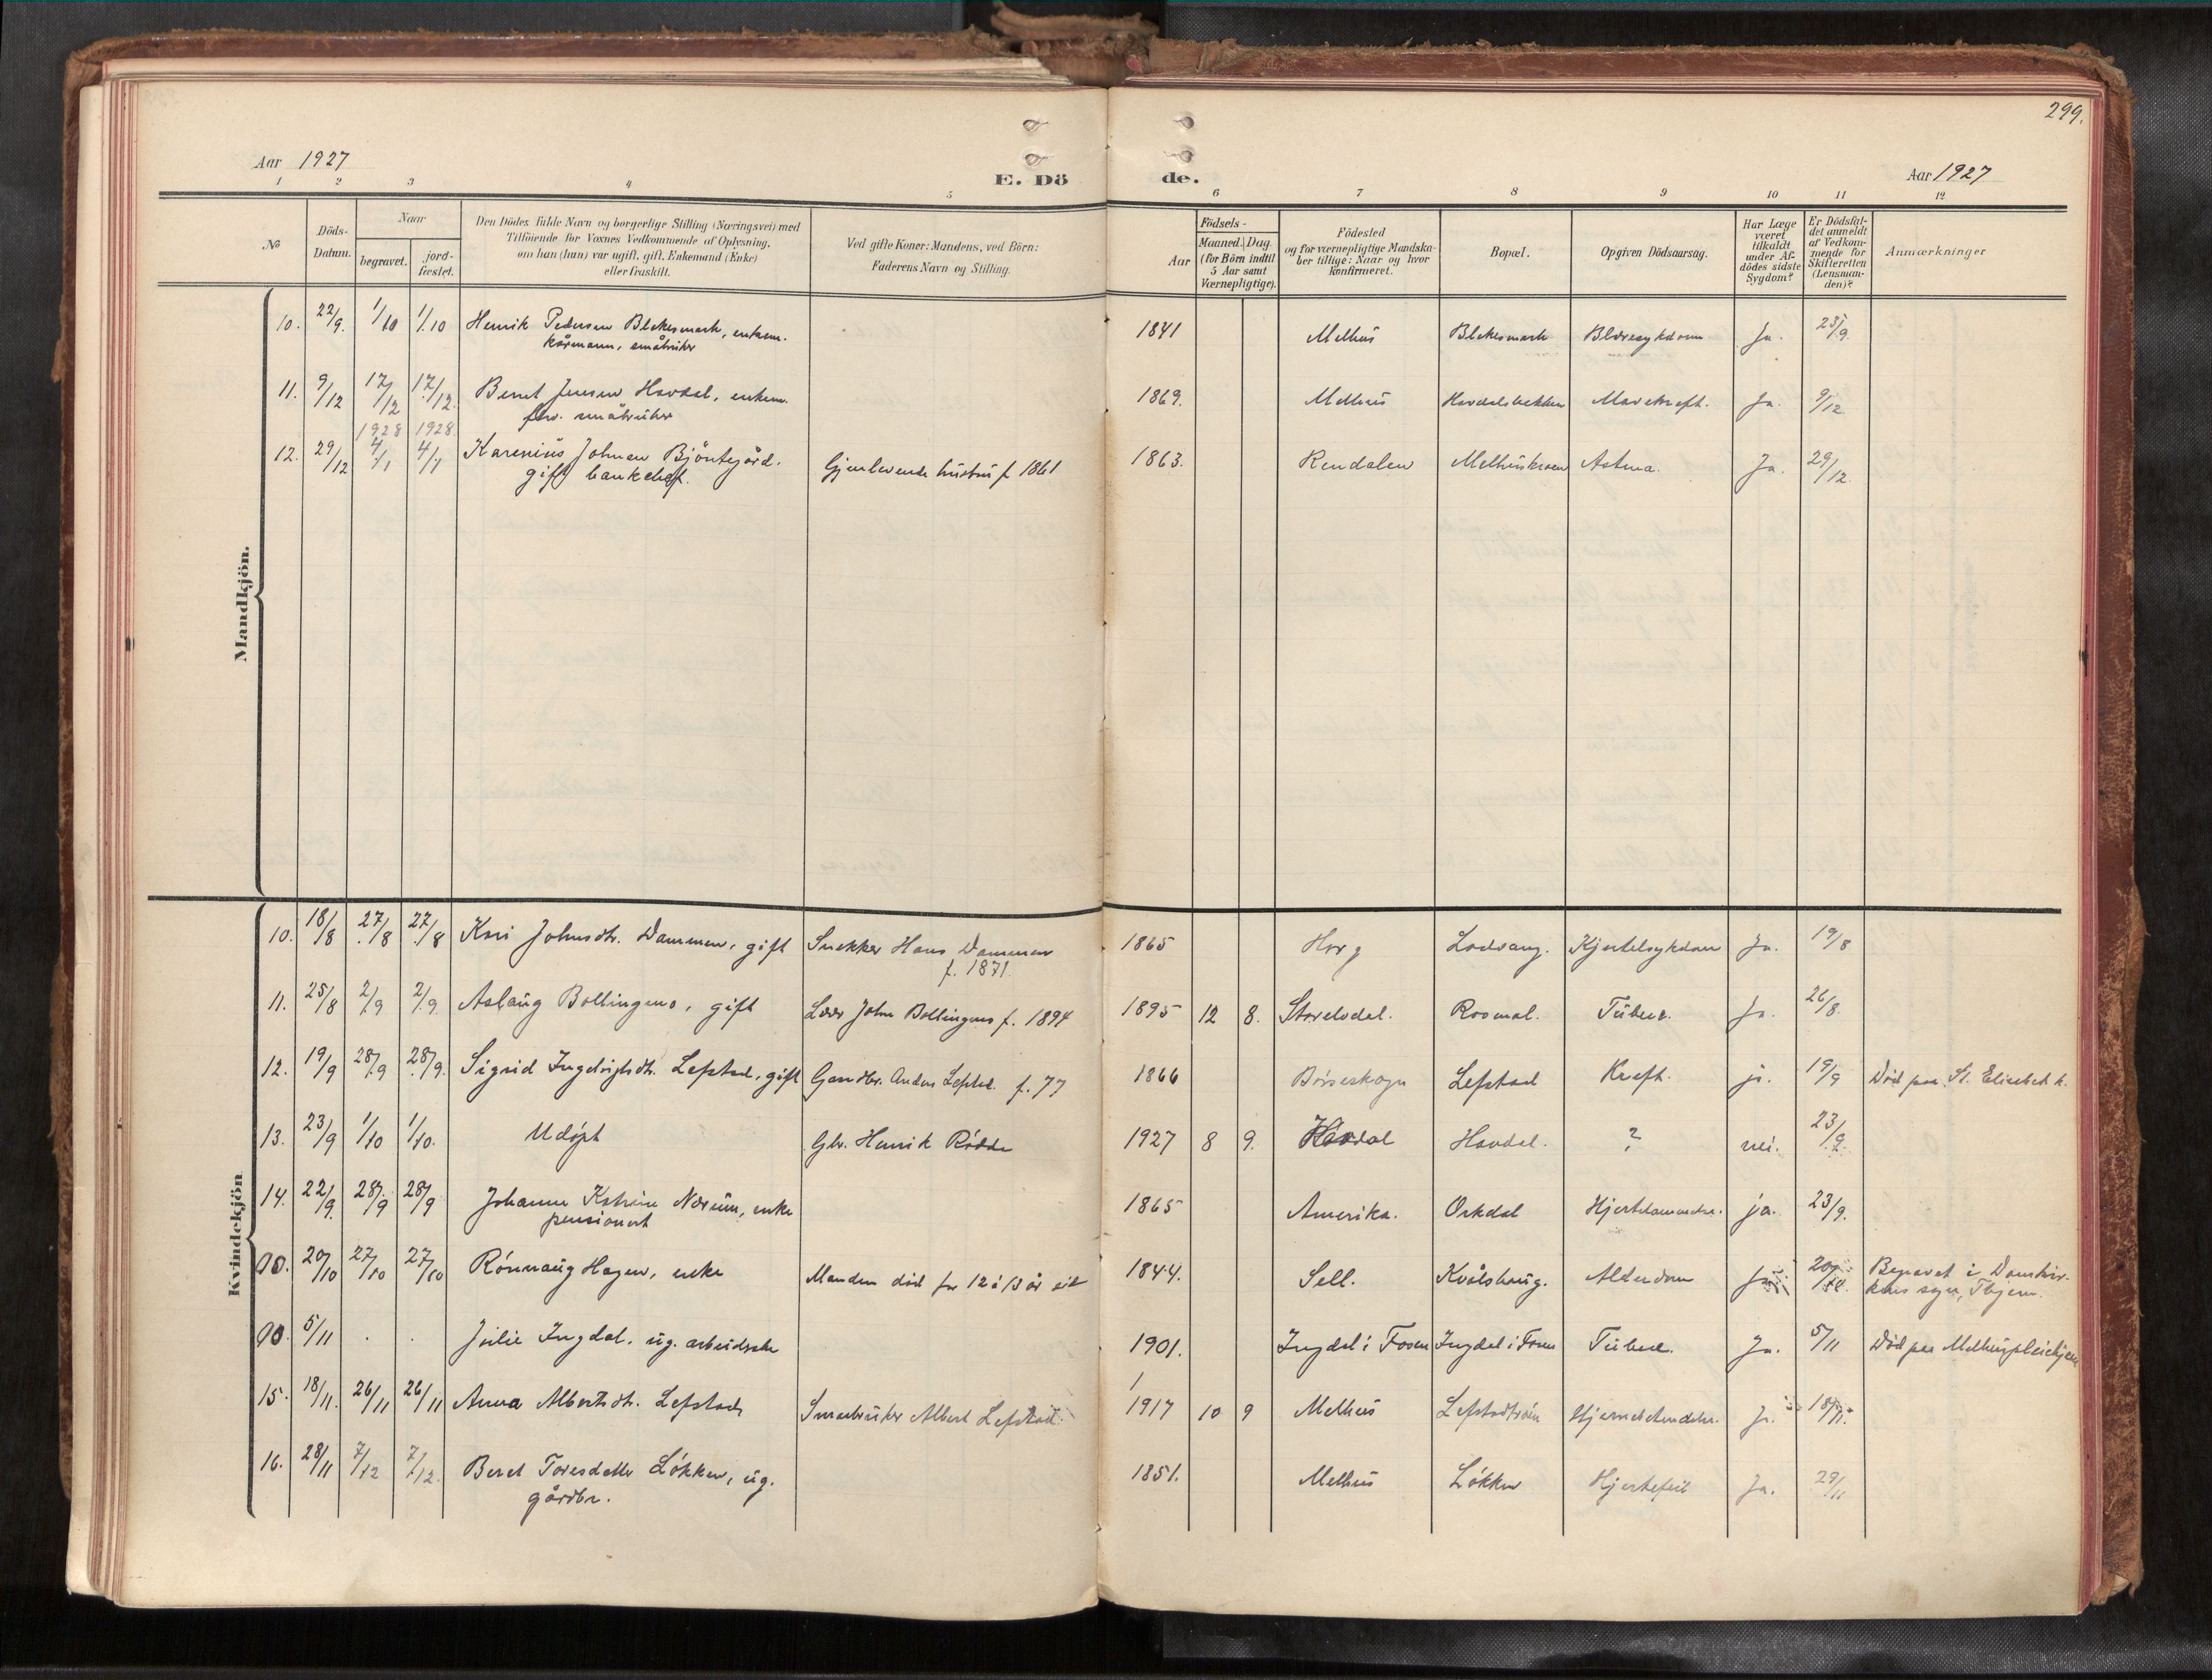 299.
Aar 1927
E. Dö
de.
Aar 1927
1 2 3 4 5 6 7 8 9 10 11 12
No
Döds-
Datum.
Naar
begravet.
jord-
fæstet.
Den Dödes fulde Navn og borgerlige Stilling (Næringsvei) med
Tilföiende for Voxnes Vedkommende af Oplysning,
om han (hun) var ugift, gift, Enkemand (Enke)
eller fraskilt.
Ved gifte Koner: Mandens, ved Börn:
Faderens Navn og Stilling.
Födsels-
Aar
Maaned. Dag.
(for Börn indtil
5 Aar samt
Værnepligtige).
Födested
og for værnepligtige Mandska-
ber tillige: Naar og hvor
konfirmeret.
Bopæl.
Opgiven Dödsaarsag.
Har Læge
været
tilkaldt
under Af-
dödes sidste
Sygdom?
Er Dödsfal-
det anmeldt
af Vedkom-
mende for
Skifteretten
(Lensman-
den)?
Anmærkninger
Mandkjön.
10. 22/9. 1/10 1/10 Henrik Pedersen Blekesmark, enkem. 1841 Melhus Blekesmark Blæresykdom Ja. 23/9.
kårmann, småbruker
11. 9/12 17/12 17/12. Berut Jensen Havdal, enkem. 1869. Melhus Havdalsbakken Mavekreft. Ja. 9/12
småbruker
1928 1928.
12. 29/12 4/1 4/1 Karenius Johnsen Bjöntegård. Gjenlevende hustru f. 1861 1863. Rendalen Astma. Ja. 29/12.
gift bankchef.
Kvindekjön
10. 18/8 27/8 27/8 Kari Johnsdtr. Dammen, gift Snekker Hans Dammen 1865 Horg Ladvang. Kjertelsykdom Ja. 19/8
f. 1871.
11. 25/8 2/9 2/9. Aslaug Bollingmo, gift Lærer John Bollingmo f. 1894 1895 12 8. Storelvdal. Rosmal. Tuberk. Ja. 26/8.
12. 19/9 28/9 28/9. Sigrid Ingebrigtsdtr. Lefstad, gift Gardbr. Anders Lefstad. f. 77 1866 Börseskogn Lefstad Kreft. ja. 19/9 Död paa St. Elisabeth.
13. 23/9 1/10 1/10. Udöpt Gbr. Henrik Rödde 1927 8 9. Havdal Havdal. ? nei. 23/9.
14. 22/9. 28/9 28/9 Johanne Katrine Nærum, enke 1865 Amerika. Orkdal Hjertelammelse. ja. 23/9.
pensionert
00. 20/10 27/10 27/10 Rönnaug Hagen, enke Manden död for 12 à 13 år sit 1844. Sell. Kvålshaug. Alderdom Ja 20/10. Begravet i Domkir-
kens sogn, Thjem.
00. 5/11 . . Julie Ingdal. ug. arbeiderske 1901. Ingdal i Fosen Ingdal i Fosen Tuberk. Ja. 5/11 Död paa Melhuspleiehjem
15. 18/11. 26/11 26/11 Anna Albertsdtr. Lefstad Smaabruker Albert Lefstad 1917 10 9 Melhus Lefstadtröen Ja. 18/11.
16. 28/11 7/12 7/12. Beret Toresdatter Lökken, ug. 1851. Melhus Lökken Hjertefeil Ja. 29/11
gårdbr.